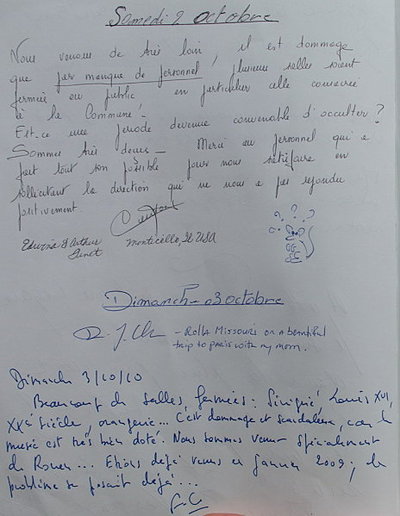 Samedi 2 octobre
Nous venons de très loin, il est dommage
que par manque de personnel, plusieurs salles soient
fermées au public en particulier celle consacrée
à la Commune!
Est-ce une période devenue convenable d'occulter?
Sommes très déçus - Merci au personnel qui a
fait tout son possible pour nous satisfaire en
sollicitant la direction qui ne nous a pas répondu
positivement
Edwina & Arthur
Monticello, IL USA
? ? ? ?
Dimanche 03 octobre
- Rolla Missouri on a beautiful
trip to paris with my mom.
Dimanche 3/10/10
Beaucoup de salles fermées : Sévigné, Louis XVI,
XXè siècle, orangerie... C'est dommage et scandaleux, car le
musée est très bien doté. Nous sommes venus spécialement
de Rouen... Etions déjà venus en Janvier 2009, le
problème se posait déjà...